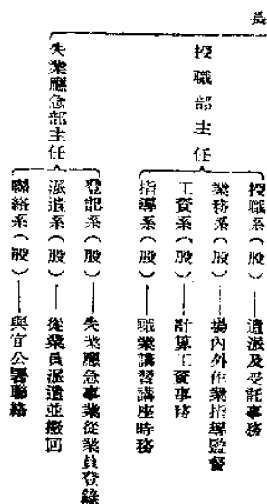 長
授職部主任
授職系（股）——遣派及受託事務
業務系（股）——場內外作業指導監督
工資系（股）——計算工資事務
指導系（股）——職業講習講座時務
失業應急部主任
登記系（股）——失業應急事業從業員登錄
派遣系（股）——從業員派遣並撤回
聯絡系（股）——與官公署聯絡